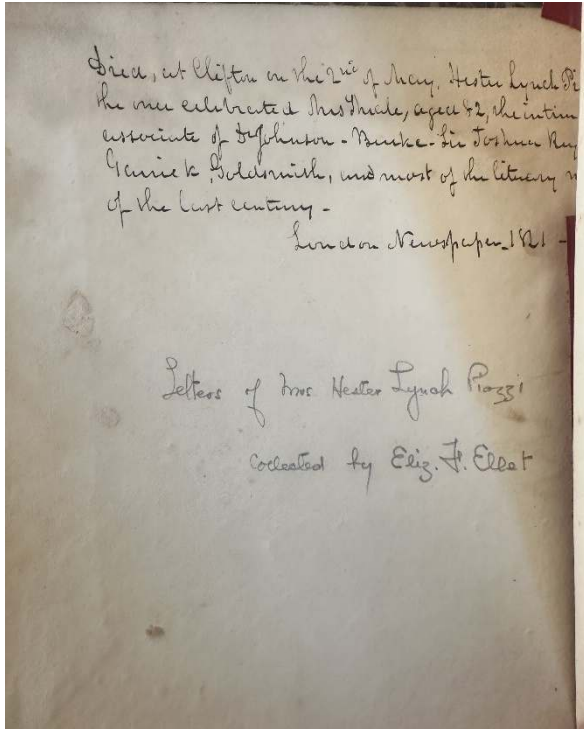 Died, at Clifton on the 2nd of May, Hester Lynch Pi
the once celebrated Mrs Thrale, aged 82, the intim
associate of Dr Johnson - Burke - Sir Joshua Rey
Garrick, Goldsmith, and most of the literary
of the last century -
London Newspaper - 1821 -
Letters of Mrs Hester Lynch Piozzi
collected by Eliz. F. Ellet